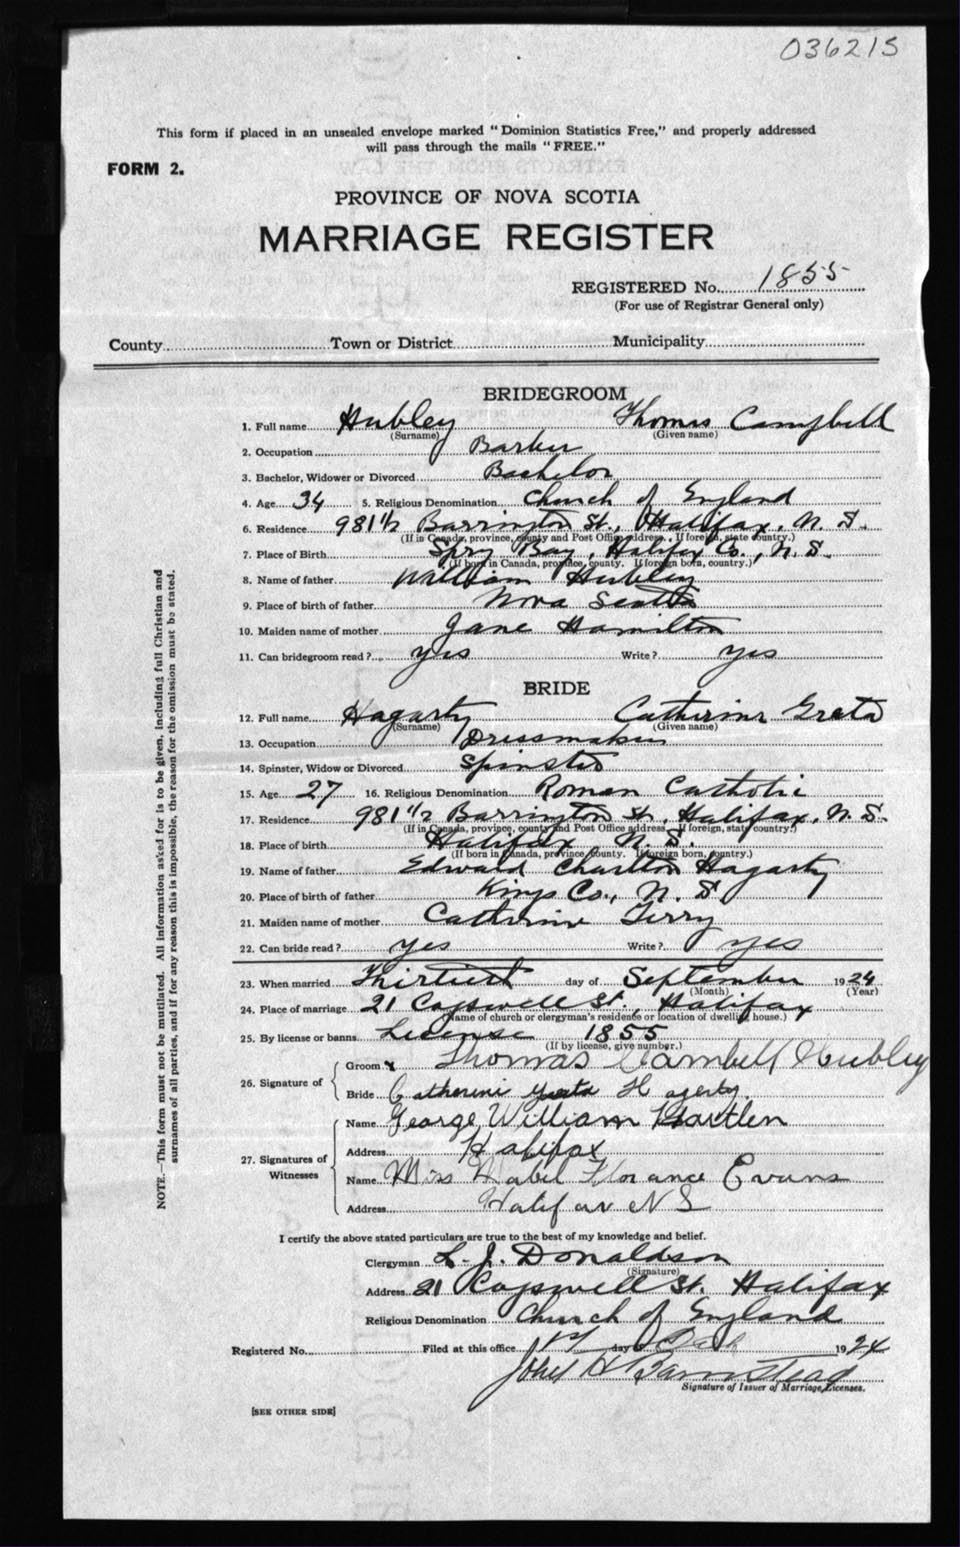 036215
This form if placed in an unsealed envelope marked "Dominion Statistics Free," and properly addressed
will pass through the mails "FREE."
FORM 2.
PROVINCE OF NOVA SCOTIA
MARRIAGE REGISTER
REGISTERED No. 1855
(For use of Registrar General only)
County Town or District Municipality
BRIDEGROOM
1. Full name Hubley Thomas Campbell
(Surname) (Given name)
2. Occupation Barber
3. Bachelor, Widower or Divorced Bachelor
4. Age 34 5. Religious Denomination Church of England
6. Residence 981 1/2 Barrington St., Halifax, N. S.
(If in Canada, province, county and Post Office address. If foreign, state country.)
7. Place of Birth Spry Bay, Halifax Co., N. S.
(If born in Canada, province, county. If foreign born, country.)
8. Name of father William Hubley
9. Place of birth of father Nova Scotia
10. Maiden name of mother Jane Hamilton
11. Can bridegroom read? yes Write? yes
BRIDE
12. Full name Hagarty Catherine Greta
(Surname) (Given name)
13. Occupation Dressmaker
14. Spinster, Widow or Divorced Spinster
15. Age 27 16. Religious Denomination Roman Catholic
17. Residence 981 1/2 Barrington St., Halifax, N. S.
(If in Canada, province, county and Post Office address. If foreign, state country.)
18. Place of birth Halifax N. S.
(If born in Canada, province county. If foreign born, country.)
19. Name of father Edward Charlton Hagarty
20. Place of birth of father Kings Co., N. S.
21. Maiden name of mother Catherine Terry
22. Can bride read? yes Write? yes
23. When married Thirtieth day of September 1924
(Month) (Year)
24. Place of marriage 21 Cogswell St., Halifax
(Name of church or clergyman's residence or location of dwelling house.)
25. By license or banns License 1855
(If by license, give number.)
26. Signature of
Groom x Thomas Cambell Hubley
Bride Catherine Hagerty
27. Signatures of Witnesses
Name George William Hartlen
Address Halifax
Name Miss Mabel Florance Evans
Address Halifax N S
I certify the above stated particulars are true to the best of my knowledge and belief.
Clergyman L. J. Donaldson
(Signature)
Address 21 Cogswell St. Halifax
Religious Denomination Church of England
Registered No. Filed at this office 1st day of 1924
Barnstead
Signature of Issuer of Marriage Licenses.
[SEE OTHER SIDE]
NOTE.—This form must not be mutilated. All information asked for is to be given, including full Christian and
surnames of all parties, and if for any reason this is impossible, the reason for the omission must be stated.